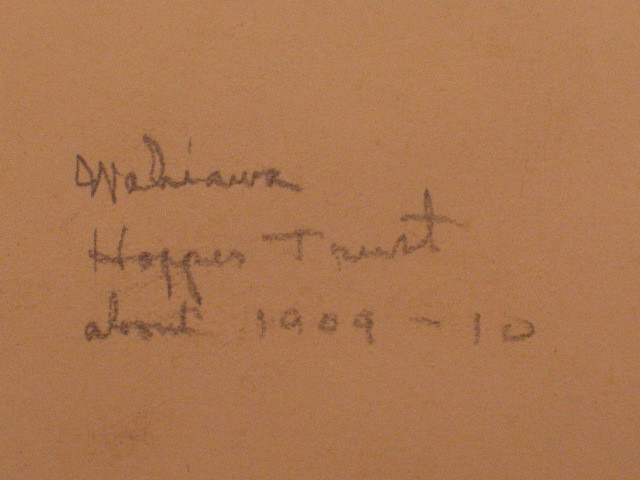 Wahiawa
Hopper Trust
about 1909-10